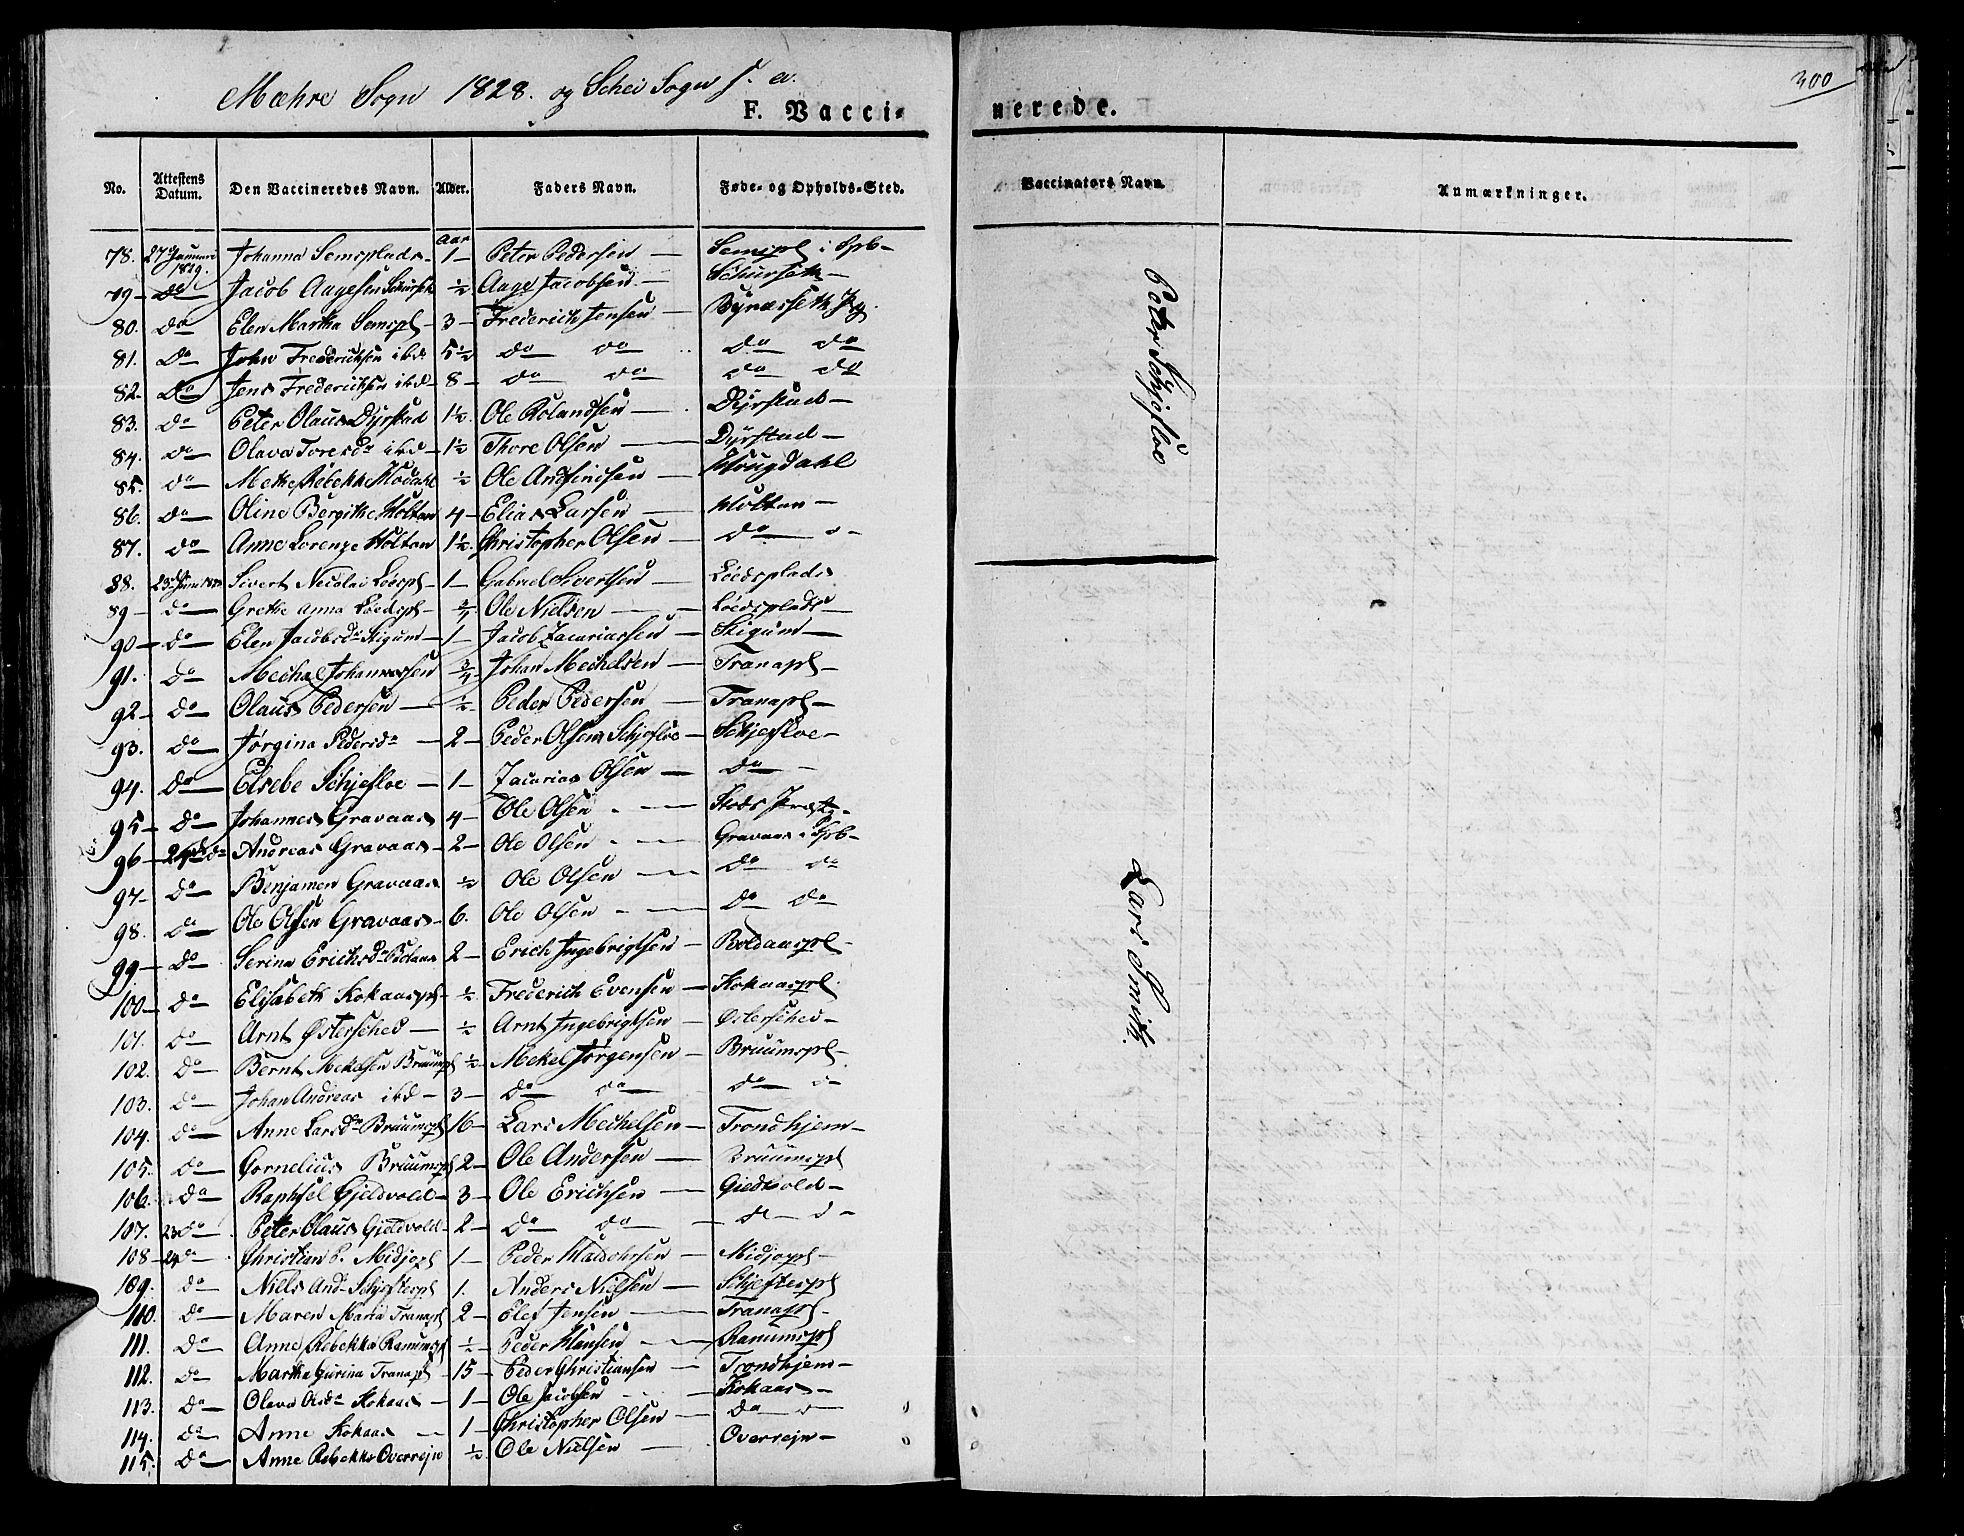 Mæhre Sogn 1828. og Schei Sogn s. a.
300
F. Vaccinerede.
No. Attestens Datum. Den Vaccineredes Navn. Alder. Faders Navn. Føde- og Opholds-Sted. Vaccinators Navn. Anmærkninger.
Aar
78. 27de Januari 1829. Johanna Semsplads 1 — Peter Pedersen — Semspl i Spb —
79 — do — Jacob Aagesen ½ Aage Jacobsen —
80. do Elen Martha Semspl — 3 — Frederich Jensen —
81. do — John Frederichsen ibd 5½ do — do — do — do
82. do — Jens Frederichsen ibd — 8 — do — do — do — do
83. do Peter Olaus Dyrstad 1½ Ole Rolandsen — Dyrstad —
84. do — Olava Toresdr ibd — 1½ Thore Olsen — Dyrstad —
85. do — Methe Rebekk ½ Ole Andfinsen —
86. do — Oline Bergithe Holtan 4 — Elias Larsen — Holtan —
87. do Anne Lorenze Holtan 1½ Christopher Olsen — do —
88. Sivert Nicolai Löespl — 1 — Gabriel Sivertsen — Löedsplads
89 — do — Grethe Anna Löedspl — ¾ Ole Nielsen — Löedsplads
90 — do — Elen Jacobsdr Stigum — 1 — Jacob Zacariassen — Stigum —
91. do — Mechal Johannessen ¾ Johan Mechelsen — Tranapl —
92 — do — Olaus Pedersen — ½ Peder Pedersen — Tranapl —
93. do — Jørgina Pedersdr — 2 — Peder Olsen Schjefloe — Schjefloe —
94. do — Elsebe Schjefloe — 1 — Zacarias Olsen — do —
95 — do — Johannes Gravaas 4 — Ole Olsen — Stods Præstg —
96 — 24de do Andreas Gravaas — 2 — Ole Olsen — Gravaas i Spb —
97 — do — Benjamen Gravaas ½ Ole Olsen — do do
98. do — Ole Olsen Gravaas — 6. Ole Olsen — do — do
99 — do — Serina Erichsdr 2 — Erich Ingebrigtsen — Boldaaspl —
100 — do — Elisabeth Kokaaspl — ½ Frederich Evensen — Kokaaspl
101. do — Arnt Østersched — ½ Arnt Ingebrigtsen — Østersched —
102. do — Bernt Mekelsen Bruumspl ½ Mekel Jørgensen — Bruumspl —
103. do — Johan Andreas ibd — 3 — do — do — do —
104. do — Anne Larsdr Bruumspl 16 — Lars Mechelsen — Trondhjem —
105. do — Cornelius Bruumspl 2 — Ole Andersen — Bruumspl
106. do — Raphael Gjeldvold — 3 — Ole Erichsen — Gieldvold —
107. 23 do — Peter Olaus Gieldvold — 2 — do — do —
108 — 24 do — Christian P. Midjopl 1 — Peder — Midjopl —
109. do — Niels And. Schjeftespl 1. Anders Nielsen — Schjeftespl
110. do — Maren Maria Tranapl 2 — Elef Jensen — Tranapl —
111. do — Anne Rebekka Ranumspl ½ — Peder Hansen — Ranumspl
112. do — Martha Gurina Tranapl — 15 — Peder Christiansen — Trondhjem —
113. do — Olava Olsdr Kokaas — 1 — Ole Jacobsen — Kokaas —
114. do — Anne Kokaas — 1 — Christopher Olsen — do —
115. do — Anne Rebekka Overrejn ½ Ole Nielsen — Overrejn —
Peter Schjefloe
Lars Smith.